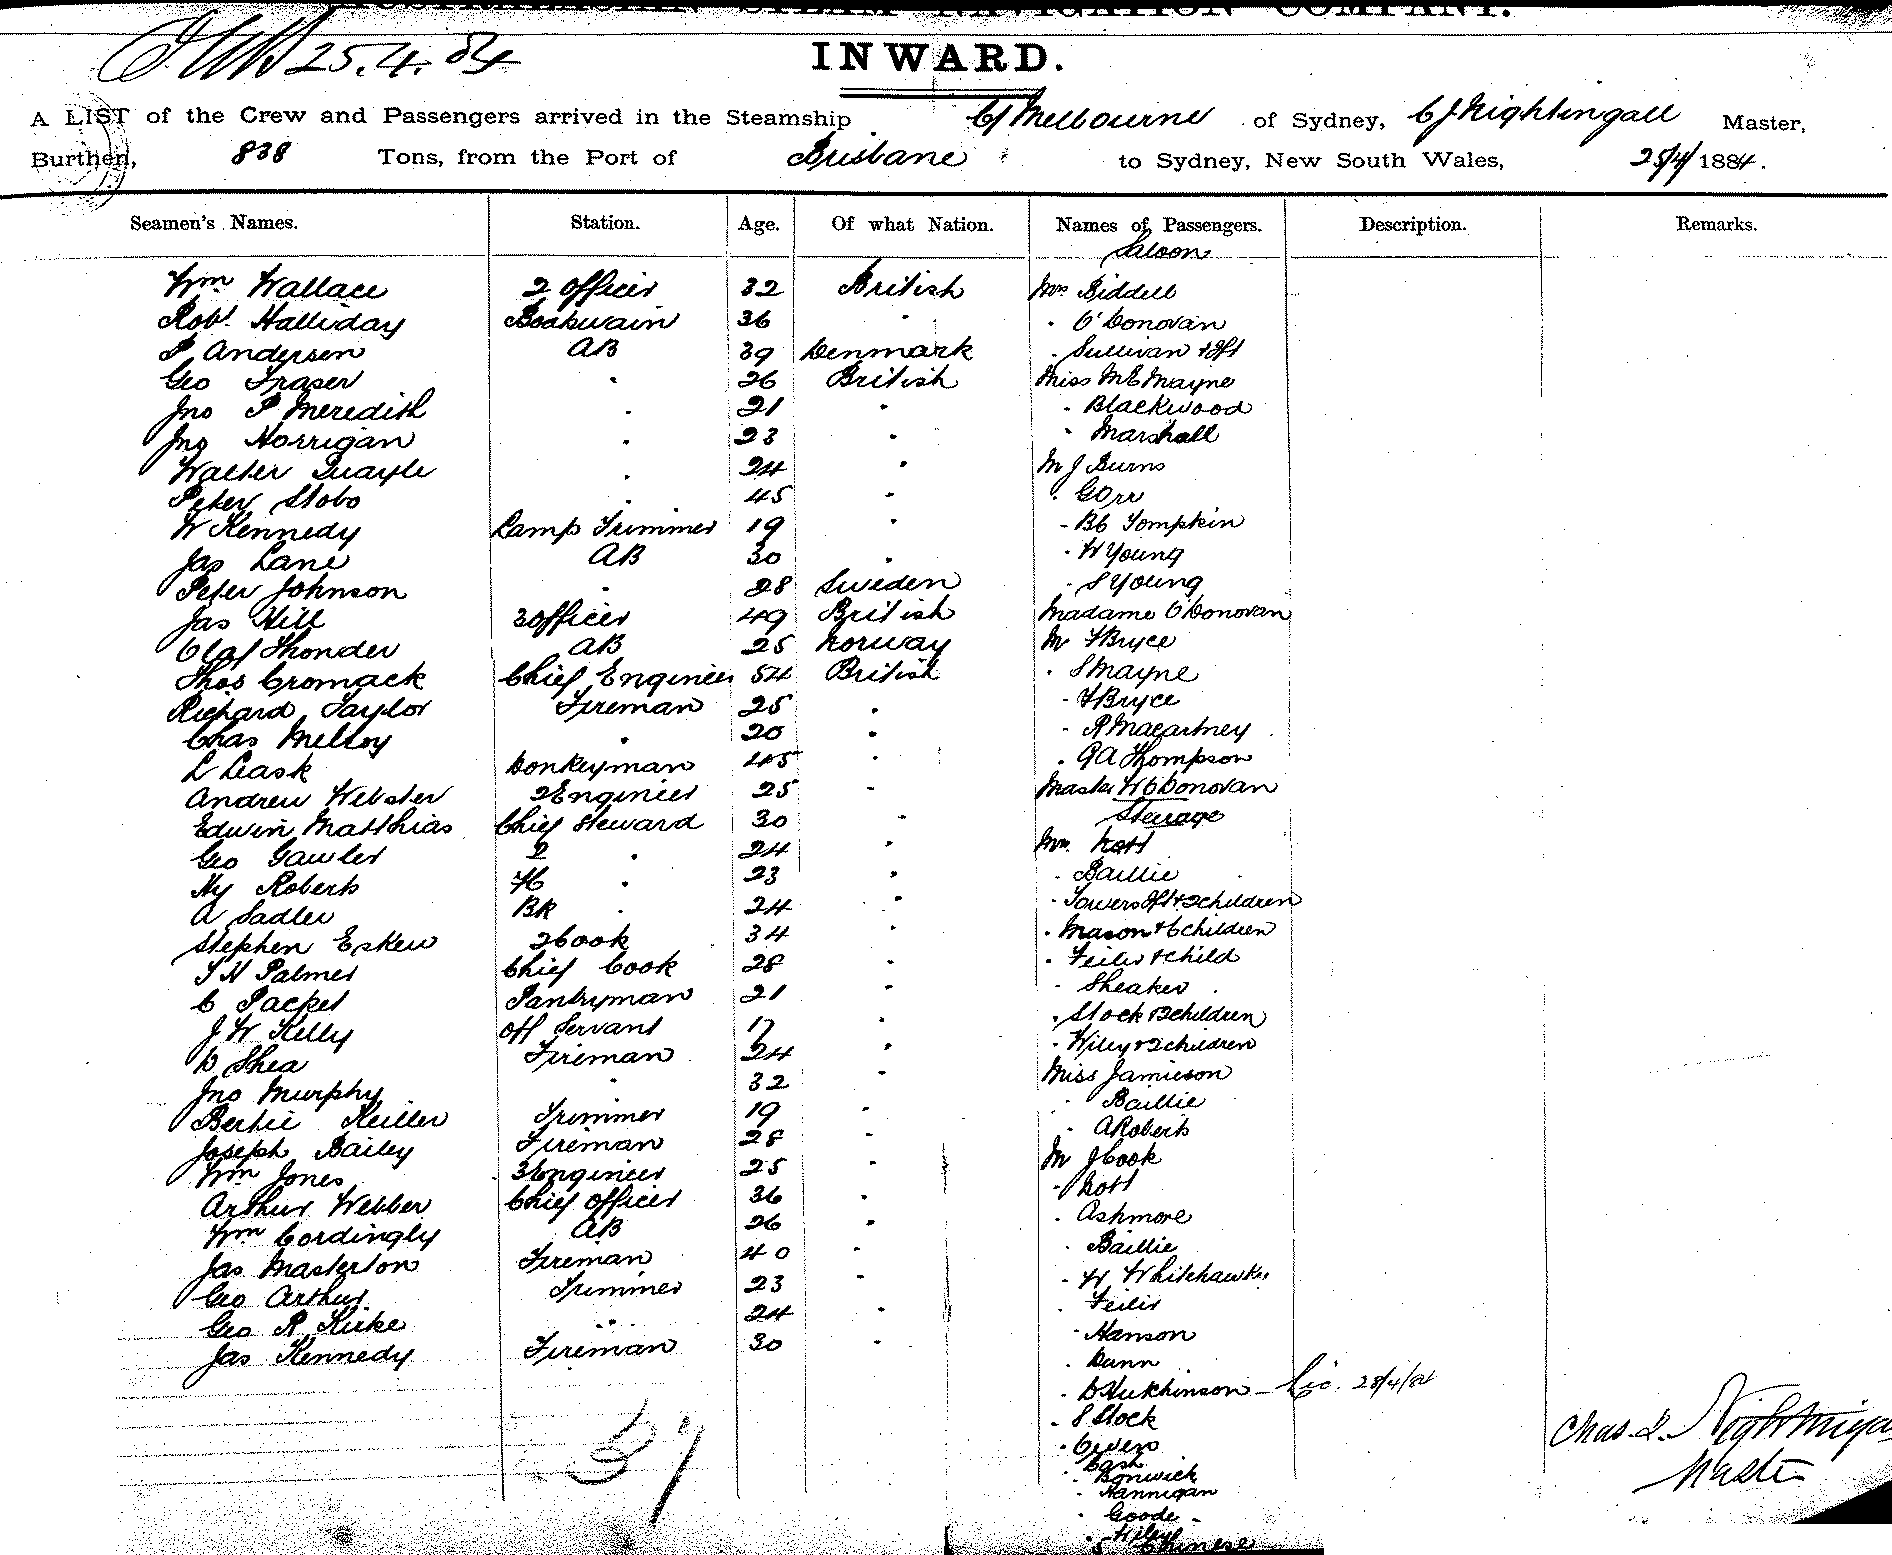 AUSTRALASIAN STEAM NAVIGATION COMPANY.
25.4.84
INWARD.
A LIST of the Crew and Passengers arrived in the Steamship C/Melbourne of Sydney, C J Nightingall Master,
Burthen, 838 Tons, from the Port of Brisbane to Sydney, New South Wales, 25/4/ 1884.
Seamen's Names. Station. Age. Of what Nation. Names of Passengers. Description. Remarks.
Saloon
Wm Wallace 2 Officer 32 British Mrs Biddell
Robt Halliday Boatswain 36 " " O'Donovan
P Andersen AB 39 Denmark " Sullivan + Inft
Geo Fraser " 26 British Miss M E Mayne
Jno P Meredith " 21 " " Blackwood
Jno Horrigan " 23 " " Marshall
Walter Quayle " 24 " M J Burns
Peter Stobo " 45 " " G Orr
W Kennedy Lamp Trimmer 19 " " B C Tompkin
Jas Lane AB 30 " " W Young
Peter Johnson " 28 Sweden " S Young
Jas Hill 3 Officer 49 British Madame O'Donovan
Olaf Thonder AB 25 Norway Mr F Bryce
Thos Cromack Chief Engineer 54 British " S Mayne
Richard Taylor Fireman 25 " " F Bryce
Chas Melroy " 20 " " R Macartney
L Leask Donkeyman 45 " " G A Thompson
Andrew Webster 2 Engineer 25 " Master W O'Donovan
Edwin Matthias Chief Steward 30 " Steerage
Geo Gawler 2 " 24 " Mrs Nott
Hy Roberts " 23 " " Baillie
A Sadler BR " 24 " " Towers Inft + 2 children
Stephen Eskew 2 Cook 34 " " Mason + 6 children
T H Palmer Chief Cook 28 " " Feilir + child
C Packet Pantryman 21 " " Sheaker
J W Kelly Off Servant 17 " " Stock + 2 children
D Shea Fireman 24 " " Wiley + 2 children
Jno Murphy " 32 " Miss Jamieson
Bertie Keiller Trimmer 19 " " Baillie
Joseph Bailey Fireman 28 " " A Roberts
Wm Jones 3 Engineer 25 " Mr J Cook
Arthur Webber Chief Officer 36 " " Nott
Wm Cordingly AB 26 " " Ashmore
Jas Masterton Fireman 40 " " Baillie
Geo Arthur Trimmer 23 " " W Whitehawke
Geo R Kirke " 24 " " Feilir
Jas Kennedy Fireman 30 " " Hanson
" Dunn
" D Hutchinson 28/4/84
" S Stock
" Owen
" Cash
" Bonwick
" Hannigan
" Goode
" Wiley
5 Chinese
37
Chas. J. Nightingall
Master